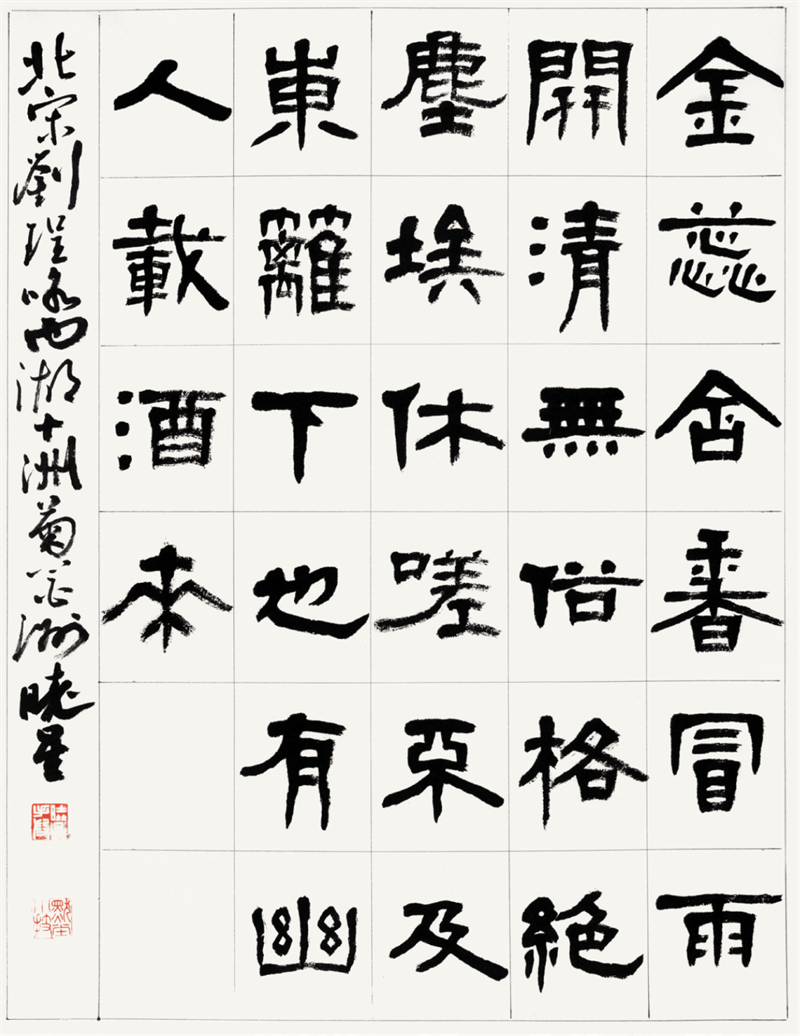 金蕊含香冒雨
開清無俗格絕
塵埃休嗟及
東籬下也有幽
人載酒來
北宋劉珵咏西湖十洲菊花洲曉星